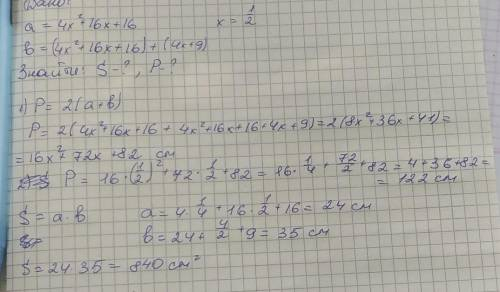 Дано:
a = 4x²+16x+16 x = 1/2
b = (4x²+16x+16) + (4x+9)
Знайти: S-?, P-?
1) P = 2(a+b)
P = 2(4x²+16x+16 + 4x²+16x+16+4x+9) = 2(8x²+36x+41) =
= 16x²+72x+82 см
P = 16·(1/2)² + 72·1/2 + 82 = 16·1/4 + 72/2 + 82 = 4+36+82 =
= 122 см
S = a·b a = 4·1/4 + 16·1/2 + 16 = 24 см
b = 24 + 4/2 + 9 = 35 см
S = 24·35 = 840 см²